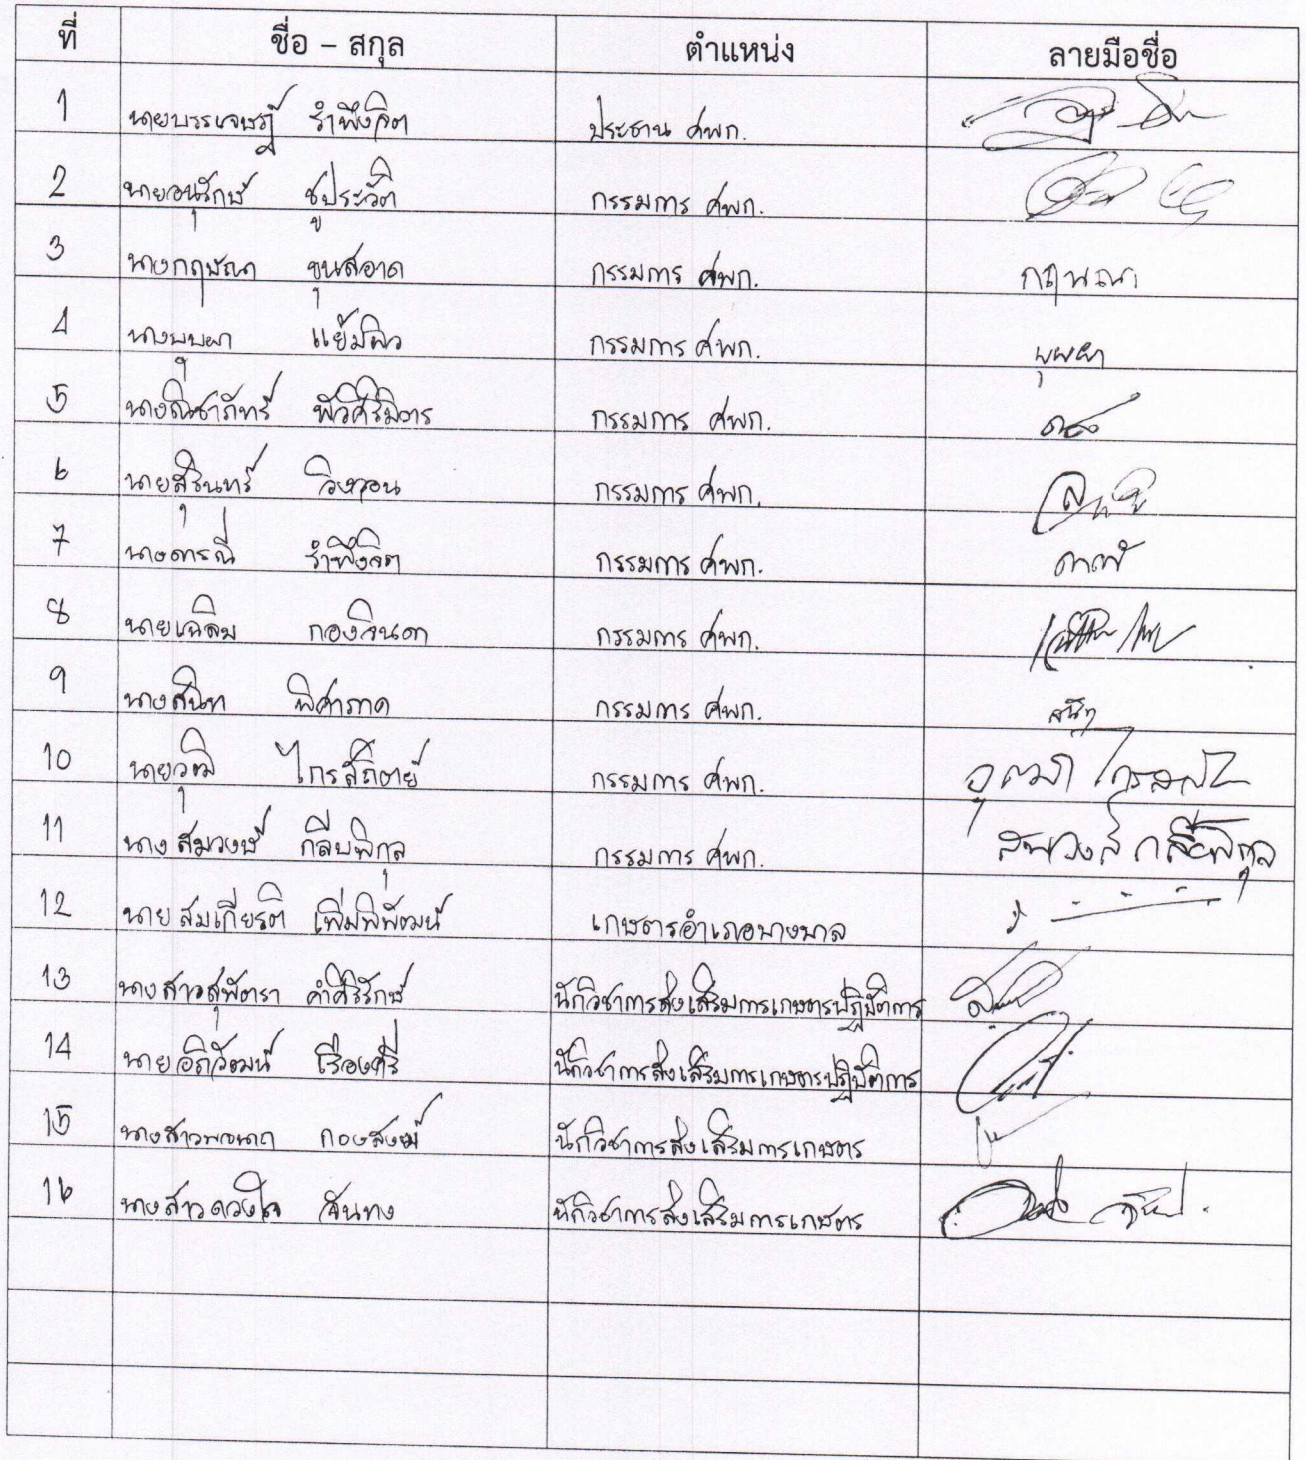 ที่ ชื่อ – สกุล ตำแหน่ง ลายมือชื่อ
1 นายบรรเจษฎ์ รำพึงจิต ประธาน ศพก.
2 นายอนุรักษ์ ชูประวัติ กรรมการ ศพก.
3 นางกฤษณา ขุนสอาด กรรมการ ศพก. กฤษณา
4 นางบุบผา แย้มผิว กรรมการ ศพก. บุบผา
5 นางณิชาภัทร์ กรรมการ ศพก.
6 นายสุรินทร์ วิงวอน กรรมการ ศพก.
7 นางดารณี รำพึงจิต กรรมการ ศพก. ดารณี
8 นายเฉลิม กองจินดา กรรมการ ศพก.
9 นางสนิท พิศาภาค กรรมการ ศพก. สนิท
10 นายวุฒิ ไกรสถิตย์ กรรมการ ศพก.
11 นางสมวงษ์ กลีบพิกุล กรรมการ ศพก. สมวงษ์ กลีบพิกุล
12 นายสมเกียรติ เพิ่มพิพัฒน์ เกษตรอำเภอบางบาล
13 นางสาวสุพัตรา คำศิริรักษ์ นักวิชาการส่งเสริมการเกษตรปฏิบัติการ
14 นายอภิวัฒน์ เรืองศรี นักวิชาการส่งเสริมการเกษตรปฏิบัติการ
15 กองสงฆ์ นักวิชาการส่งเสริมการเกษตร
16 นางสาวดวงใจ จันทง นักวิชาการส่งเสริมการเกษตร